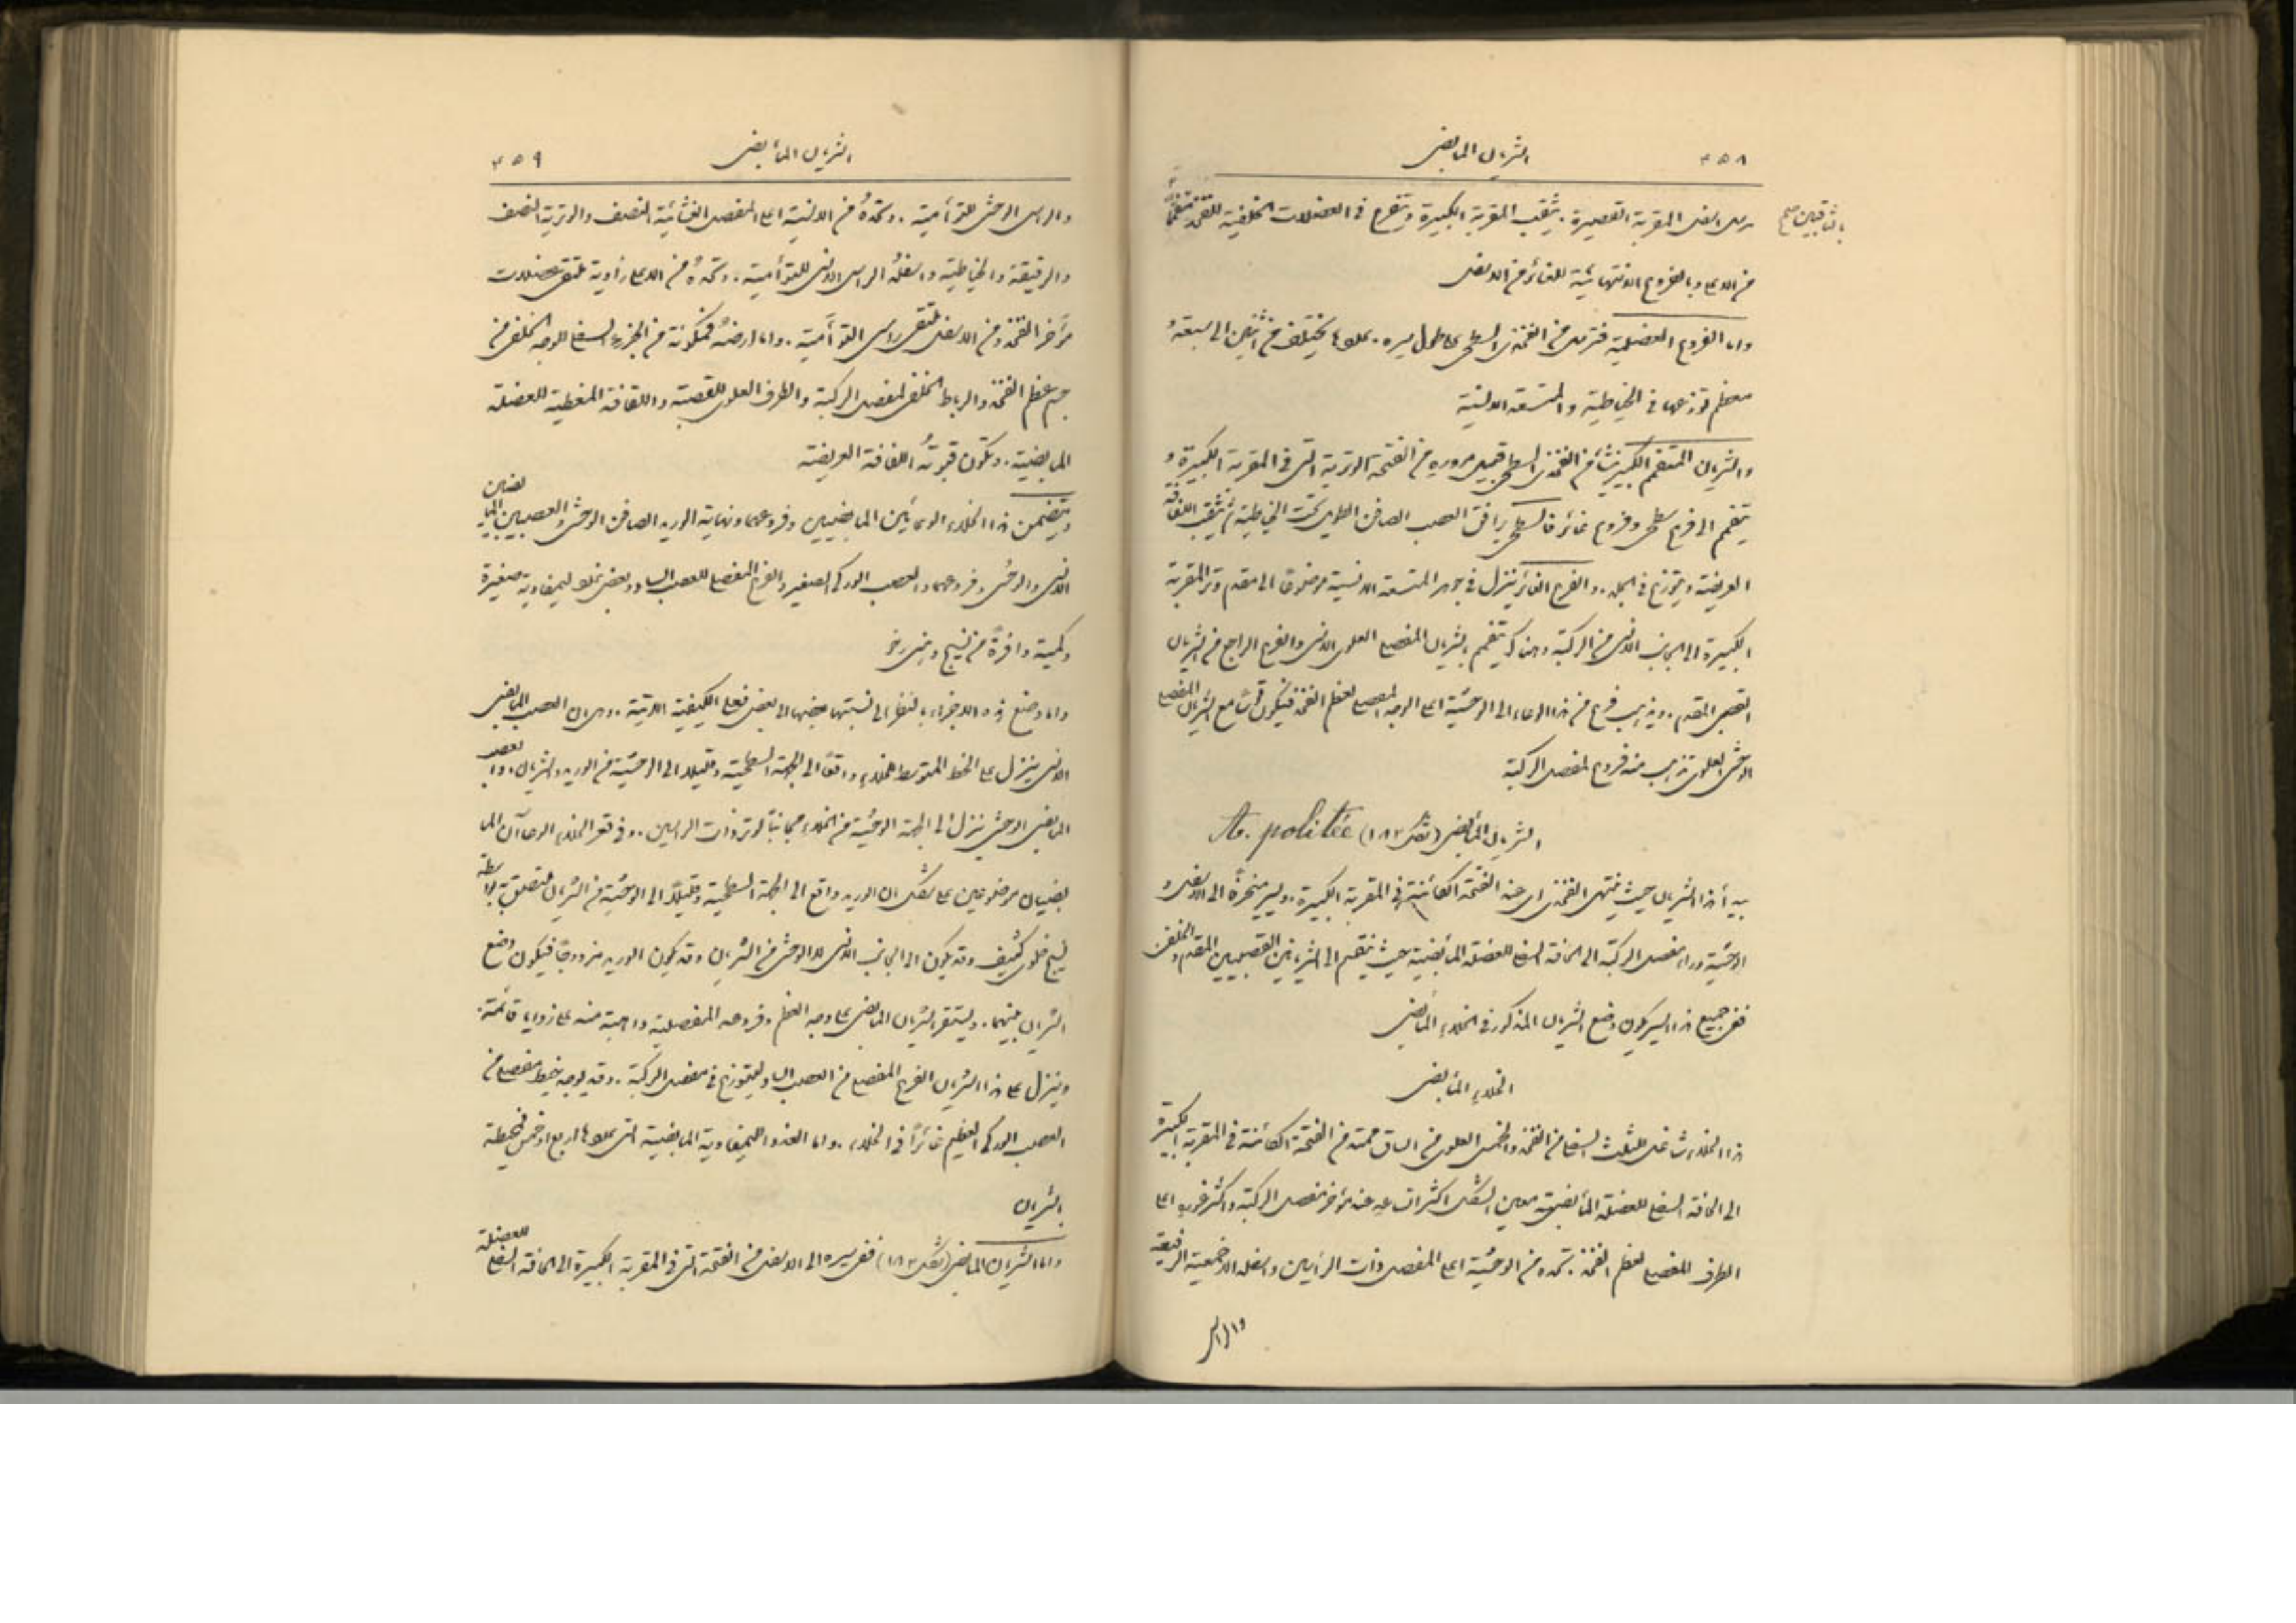 ٤٥٨ الشريان المابضي
من اسفل المقربة القصيرة. يثقب المقربة الكبيرة ويتفرع في العضلات الخلفية للفخذ متفممًا
بالثاقبين صح
من الاعلى وبالفروع الانتهائية للغائر من الاسفل
واما الفروع العضلية فترسل من الفخذي السطحي على طول سيره. عددها يختلف من اثنين الى سبعة
معظم توزعها في الخياطية والمتسعة الانسية
والشريان المتفمم الكبير ينشأ من الفخذي السطحي قبيل مروره من الفتحة الوترية التي في المقربة الكبيرة و
ينقسم الى فرع سطحي وفروع غائر فالسطحي يرافق العصب الصافن الطويل تحت الخياطية ثم يثقب اللفافة
العريضة ويتوزع في الجلد. والفرع الغائر ينزل في جوهر المتسعة الانسية موضوعًا الى مقدم وتر المقربة
الكبيرة الى الجانب الانسي من الركبة وهناك يتفمم بشريان المفصلي العلوي الانسي والفرع الراجع من الشريان
القصبي المقدم. ويذهب فرع من هذا الوعاء الى الوحشية اعلى الوجه المفصلي لعظم الفخذ فيكون قوسًا مع الشريان المفصلي
الوحشي العلوي تذهب منه فروع لمفصل الركبة
الشريان المأبضي (شكل ١٨٢) A. politée
يبدأ هذا الشريان حيث ينتهي الفخذي اي عند الفتحة الكائنة في المقربة الكبيرة. ويسير منحرفًا الى الاسفل و
الوحشية وراء مفصل الركبة الى الحافة السفلى للعضلة المأبضية حيث ينقسم الى الشريانين القصبيين المقدم والخلفي
ففي جميع هذا السير يكون وضع الشريان المذكور في الخلاء المأبضي
الخلاء المأبضي
هذا الخلاء شاغل للثلث السفلي من الفخذ والخمس العلوي من الساق ممتد من الفتحة الكائنة في المقربة الكبيرة
الى الحافة السفلى للعضلة المأبضية معين الشكل اكثر اتساعه عند مؤخر مفصل الركبة واكثر غوره اعلى
الطرف المفصلي لعظم الفخذ. تحده من الوحشية اعلى المفصل ذات الرأسين واسفله الاخمصية الرفيعة
والراس
٤٥٩ الشريان المأبضي
والراس الوحشي للتوأمية. وتحدهُ من الانسية اعلى المفصل الغشائية النصف والوترية النصف
والرقيقة والخياطية واسفلهُ الراس الانسي للتوأمية. وتحدهُ من الاعلى زاوية ملتقى عضلات
مؤخر الفخذ ومن الاسفل ملتقى راسي التوأمية. واما ارضهُ فمكونة من الجزء السفلي للوجه الخلفي من
جسم عظم الفخذ والرباط الخلفي لمفصل الركبة والطرف العلوي للقصبة واللفافة المغطية للعضلة
المابضية. وتكون قبوتهُ اللفافة العريضة
ويتضمن هذا الخلاء الوعائين المابضيين وفروعهما ونهاية الوريد الصافن الوحشي والعصبيين المابضيين
الانسي والوحشي وفروعهما والعصب الوركي الصغير والفرع المفصلي للعصب الساد وبعض غدد ليمفاوية صغيرة
وكمية وافرة من نسيج دهني رخو
واما وضع هذه الاجزاء بالنظر الى نسبتها بعضها الى بعض فعلى الكيفية الاتية. وهي ان العصب المابضي
الانسي ينزل على الخط المتوسط للخلاء واقعًا الى الجهة السطحية وقليلا الى الوحشية من الوريد والشريان. والعصب
المابضي الوحشي ينزل الى الجهة الوحشية من الخلاء مجانبًا لوتر ذات الراسين. وفي قعر الخلاء الوعاآن الما
بضيان موضوعين على شكل ان الوريد واقع الى الجهة السطحية وقليلًا الى الوحشية من الشريان ملتصق به بواسطة
نسيج خلوي كثيف وقد يكون الى الجانب الانسي لا الوحشي من الشريان وقد يكون الوريد مزدوجًا فيكون وضع
الشريان بينهما. ويستقر الشريان المابضي على وجه العظم. وفروعه المفصلية ذاهبة منه على زوايا قائمة.
وينزل على هذا الشريان الفرع المفصلي من العصب الساد ليتوزع في مفصل الركبة. وقد يوجد خيط مفصلي من
العصب الوركي العظيم غائرًا في الخلاء. واما الغدد الليمفاوية المابضية التي عددها اربع او خمس فمحيطة
بالشريان
واما الشريان المابضي (شكل ١٨٢) ففي سيره الى الاسفل من الفتحة التي في المقربة الكبيرة الى الحافة السفلى للعضلة